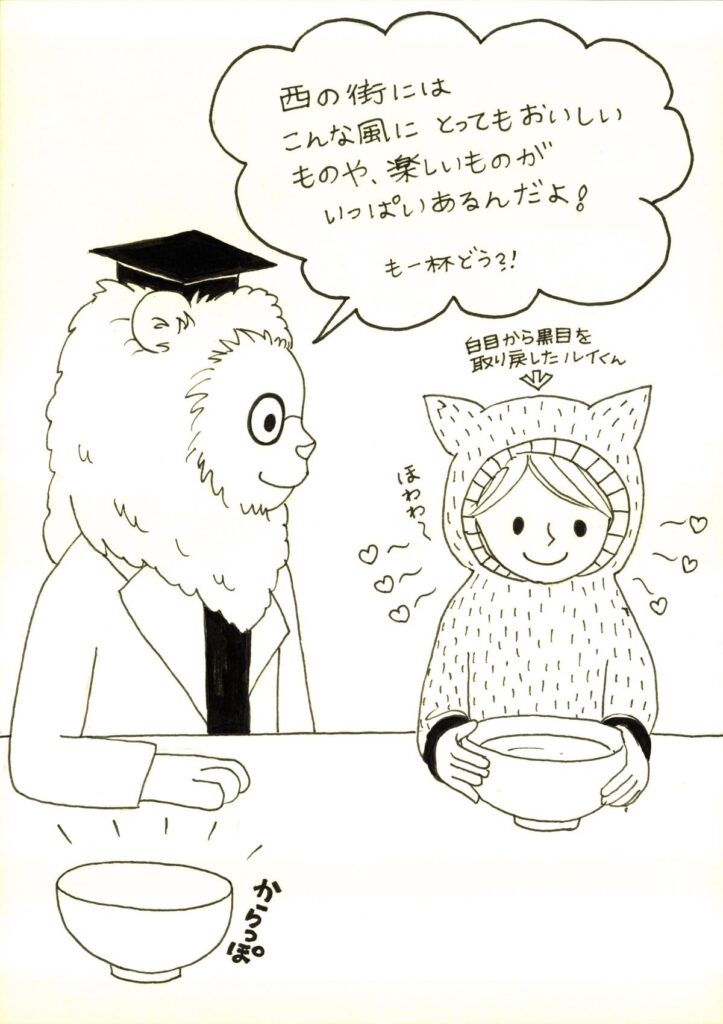 西の街には
こんな風に とってもおいしい
ものや、楽しいものが
いっぱいあるんだよ!
も一杯どう?!
白目から黒目を
取り戻したルイくん
ほわわ〜
からっぽ